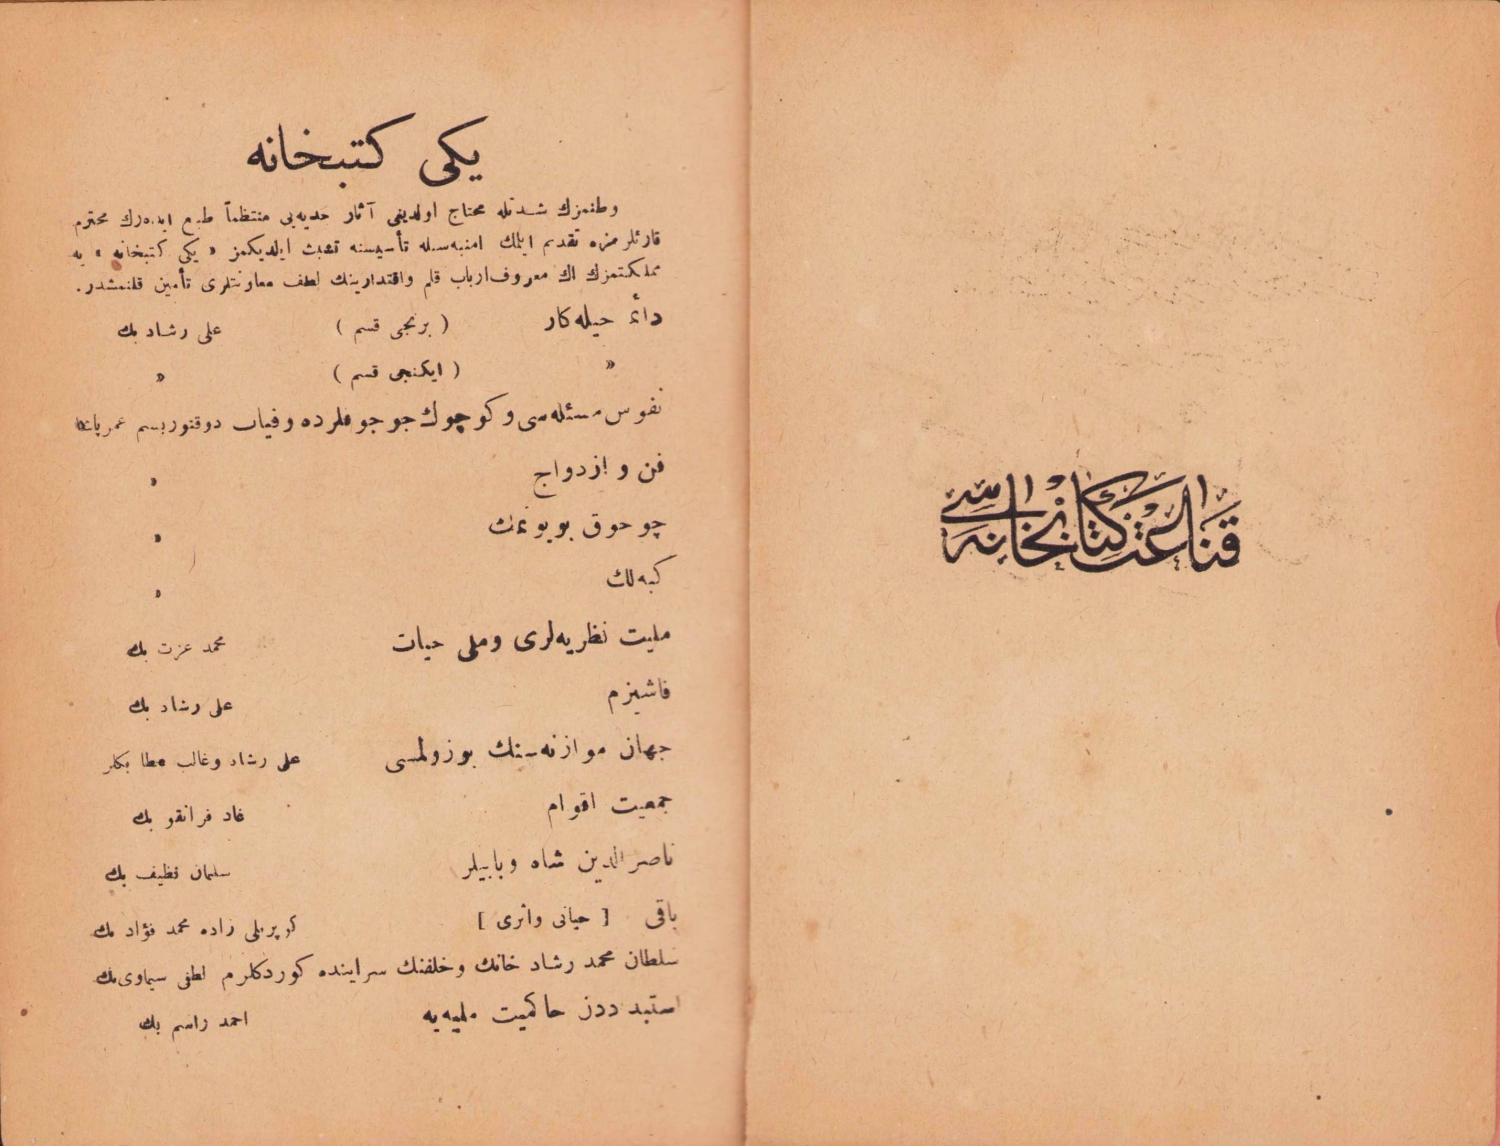 یكی كتبخانه
وطنمزك شدتله محتاج اولدیغی آثار جدیه‌یی منتظماً طبع ایده‌رك محترم
قارئلرمزه تقدیم ایلمك امنیه‌سیله تأسیسنه تشبث ایلدیكمز « یكی كتبخانه » یه
مملكتمزك اك معروف ارباب قلم واقتدارینك لطف معاونتلری تأمین قلنمشدر.
دائما حیله‌كار ( برنجی قسم ) علی رشاد بك
» ( ایكنجی قسم ) »
نفوس مسئله‌سی و كوچوك جوجوقلرده وفیات دوقتور بسیم عمر پاشا
فن و ازدواج »
چوجوق بویوتمك »
كبه‌لك »
ملیت نظریه‌لری وملی حیات محمد عزت بك
فاشیزم علی رشاد بك
جهان موازنه‌سنك بوزولمسی علی رشاد وغالب عطا بكلر
جمعیت اقوام غاد فرانقو بك
ناصرالدین شاه وبابیلر سلیمان نظیف بك
باقی [ حیاتی واثری ] كوپریلی زاده محمد فؤاد بك
سلطان محمد رشاد خانك وخلفنك سراینده كوردكلرم لطفی سیماوی بك
استبداددن حاكمیت ملیه‌یه احمد راسم بك
قناعت كتابخانه‌سی